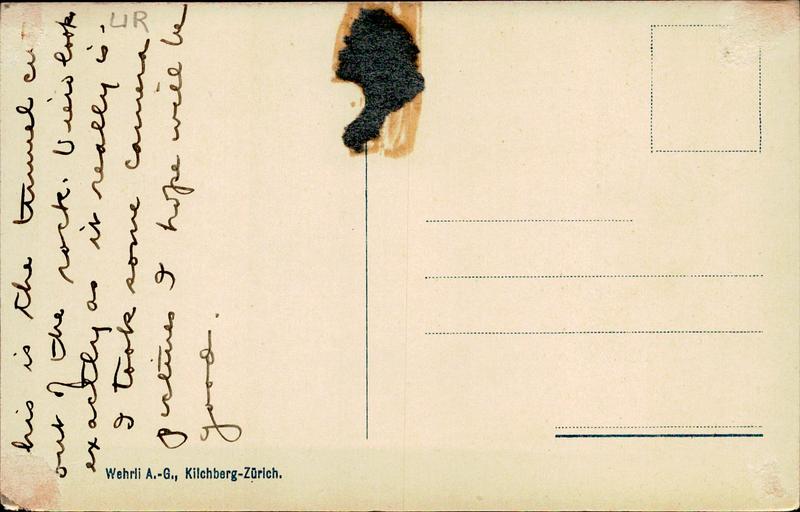 his is the tunnel cu
out of the rock. View look
exactly as it really is.
I took some camera
pictures I hope will be
good.
UR
Wehrli A.-G., Kilchberg-Zürich.